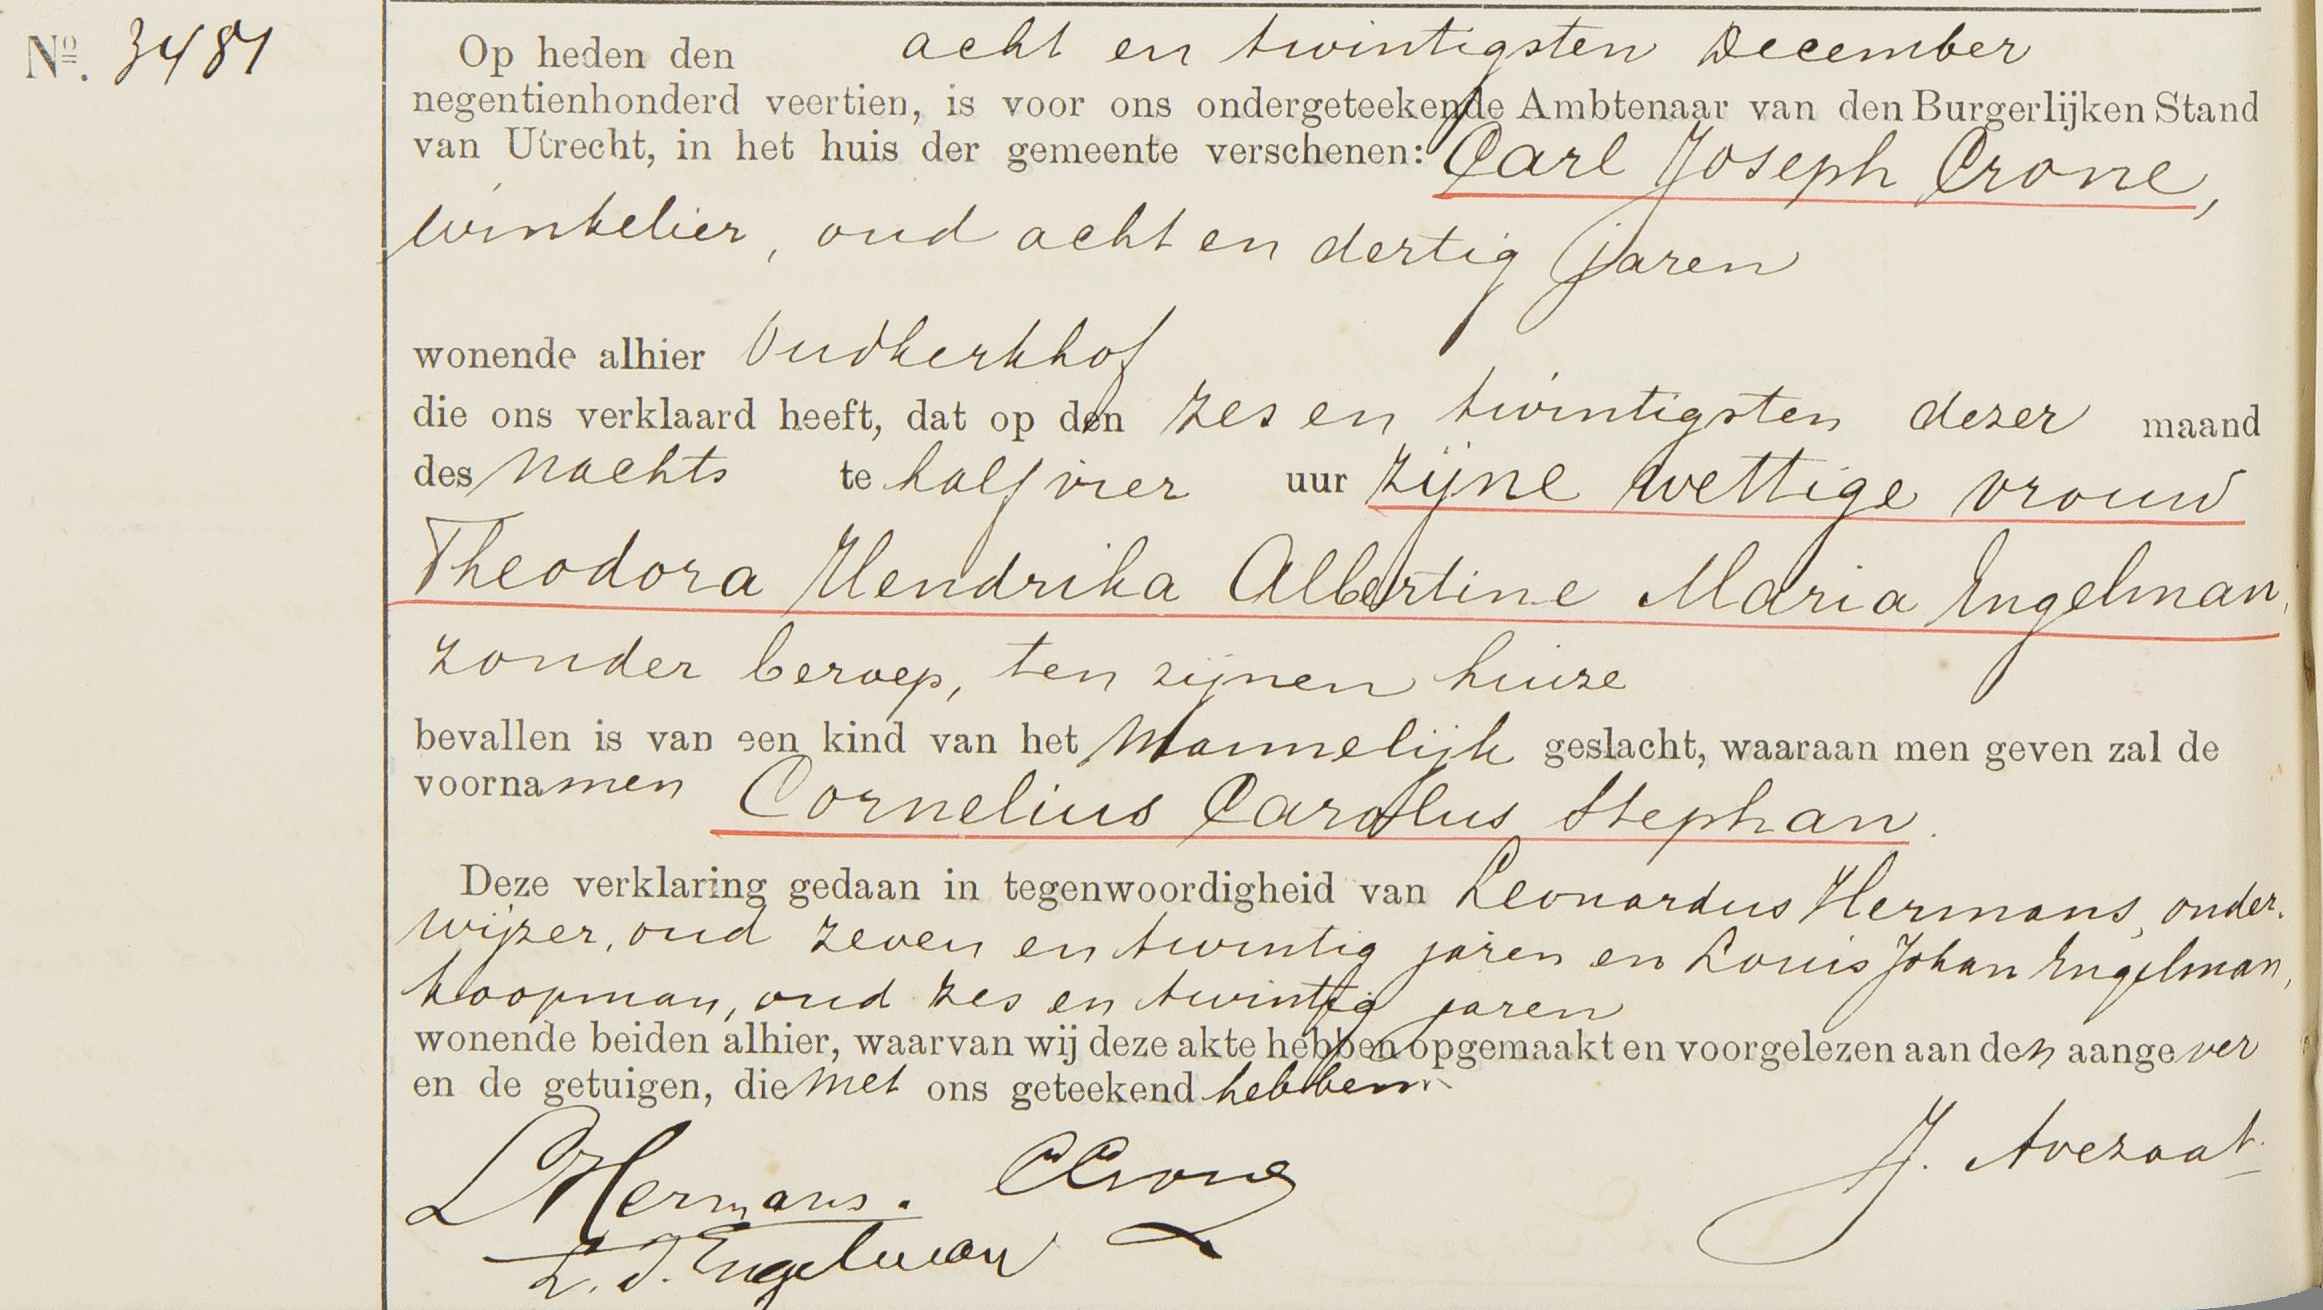 Nº. 3481
Op heden den acht en twintigsten December
negentienhonderd veertien, is voor ons ondergeteekende Ambtenaar van den Burgerlijken Stand
van Utrecht, in het huis der gemeente verschenen: Carl Joseph Crone,
winkelier, oud acht en dertig jaren
wonende alhier Oudkerkhof
die ons verklaard heeft, dat op den zes en twintigsten dezer maand
des nachts te half vier uur zijne wettige vrouw
Theodora Hendrika Albertine Maria Engelman,
zonder beroep, ten zijnen huize
bevallen is van een kind van het Mannelijk geslacht, waaraan men geven zal de
voornamen Cornelius Carolus Stephan.
Deze verklaring gedaan in tegenwoordigheid van Leonardus Hermans, onder-
wijzer, oud zeven en twintig jaren en Louis Johan Engelman,
koopman, oud zes en twintig jaren
wonende beiden alhier, waarvan wij deze akte hebben opgemaakt en voorgelezen aan den aangever
en de getuigen, die met ons geteekend hebben.
LHermans. CCrone J. Avezaat.
L. J. Engelman